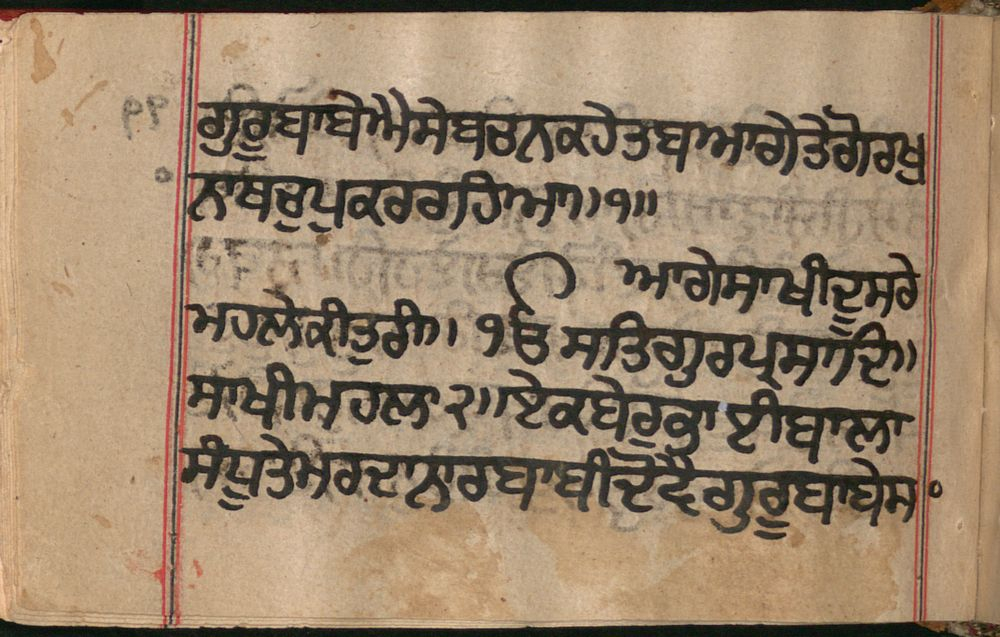 ਗੁਰੂਬਾਬੇਐਸੇਬਚਨਕਹੇਤਬਆਗੇਤੇਗੋਰਖੁ
ਨਾਥਚੁਪੁਕਰਰਹਿਆ॥੧॥
ਆਗੇਸਾਖੀਦੂਸਰੇ
ਮਹਲੇਕੀਤੁਰੀ॥ ੴ ਸਤਿਗੁਰਪ੍ਰਸਾਦਿ॥
ਸਾਖੀਮਹਲਾ੨॥ਏਕਬੇਰੁਭਾਈਬਾਲਾ
ਸੰਧੂਤੇਮਰਦਾਨਾਰਬਾਬੀਦੋਵੈਗੁਰੂਬਾਬੇਸ